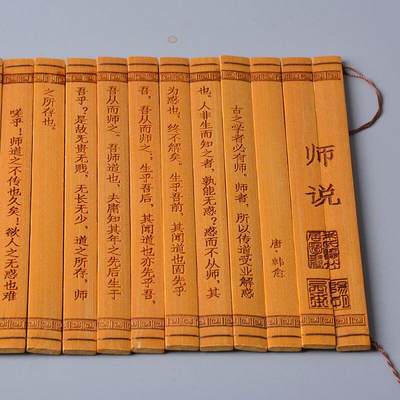 师说
唐 韩愈
古之学者必有师。师者，所以传道受业解惑
也。人非生而知之者，孰能无惑？惑而不从师，其
为惑也，终不解矣。生乎吾前，其闻道也固先乎
吾，吾从而师之；生乎吾后，其闻道也亦先乎吾，
吾从而师之。吾师道也，夫庸知其年之先后生于
吾乎？是故无贵无贱，无长无少，道之所存，师
之所存也。
嗟乎！师道之不传也久矣！欲人之无惑也难